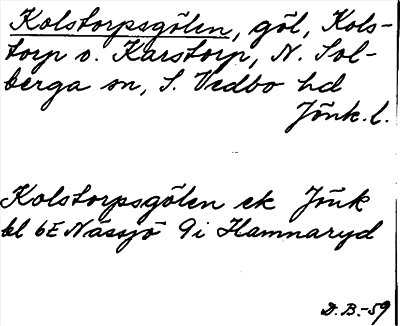 Kolstorpsgölen, göl, Kols-
torp o. Karstorp, N. Sol-
berga sn, S. Vedbo hd
Jönk. l.
Kolstorpsgölen ek Jönk
bl 6E Nässjö 9i Hamnaryd
D.B.-59